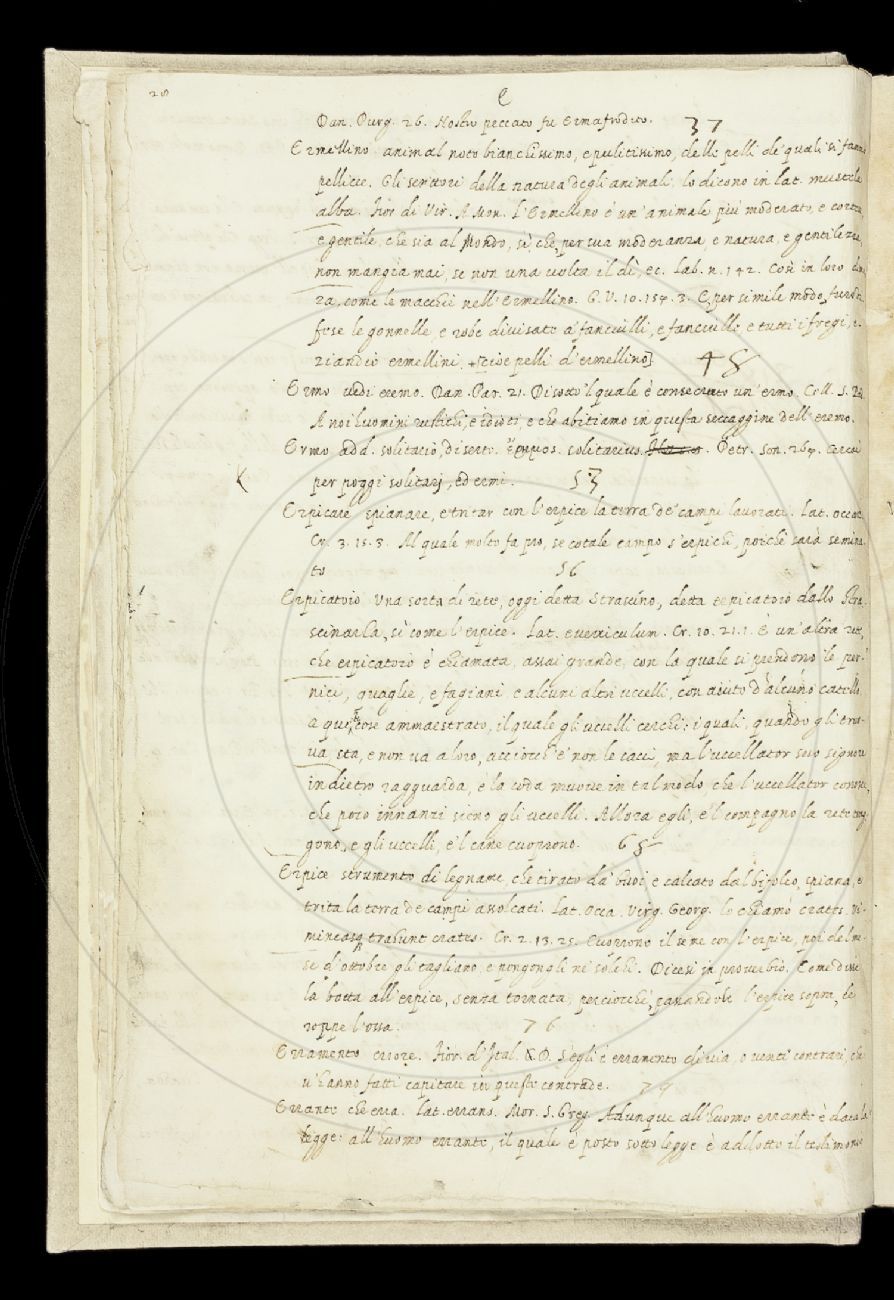 28
E
Dan. Purg. 26. Nostro peccato fu Ermafrodito. 37
Ermellino animal noto bianchissimo, e pulitissimo, delle pelli de' quali si fanno
pellicce. Gli scrittori della natura degli animali lo dicono in lat. mustela
alba. Fior di Vir. A Mon. L'Ermellino è un' animale più moderato, e cortese,
e gentile, che sia al Mondo, sì, che per sua moderanza, e natura, e gentilezza,
non mangia mai, se non una volta il dì, ec. Lab. n. 142. Così in loro
za, come le macchie nell'Ermellino. G. V. 10. 154. 3. E per simile modo,
fose le gonnelle, e robe divisate a' fanciulli, e fanciulle e tutti i fregi, e
ziandio ermellini, +[cioè pelli d'ermellino] 48
Ermo vedi eremo. Dan. Par. 21. Di sotto 'l quale è consecrato un' ermo. Coll. S. Pad.
A noi huomini rustichi, e idioti, e che abitiamo in questa seccaggine dell'eremo.
Ermo add. solitario, diserto. ἔρημος. solitarius. Petr. son. 264. Cercai
per poggi solitarj, ed ermi. 53
Erpicare spianare, e tritar con l'erpice la terra de' campi lavorati. Lat. occare.
Cr. 3. 15. 3. Al quale molto fa pro, se cotale campo s'erpichi, poichè sarà semina
to 56
Erpicatoio Una sorta di rete, oggi detta Strascino, detta erpicatoio dallo stra-
scinarla, sì come l'erpice. Lat. everriculum. Cr. 10. 21. 1. È un' altra rete,
che erpicatoio è chiamata, assai grande, con la quale si prendono le per-
nici, quaglie, e fagiani, e alcuni altri uccelli, con aiuto d'alcuno catello
a queste cose ammaestrato, il quale gli uccelli cerchi: i quali, quando gli truo-
va, sta, e non va a loro, acciocch'e' non le cacci, ma l'uccellator suo signore
indietro ragguarda, e la coda muove in tal modo, che l'uccellator conosce,
che poco innanzi sieno gli uccelli. Allora egli, e 'l compagno la rete
gono, e gli uccelli, e 'l cane cuoprono. 65
Erpice strumento di legname, che tirato da' buoi, e calcato dal bifolco, spiana, e
trita la terra de' campi assolcati. Lat. Occa. Virg. Georg. lo chiamò crates. Vi-
mineasq trahunt crates. Cr. 2. 13. 25. Cuoprono il seme con l'erpice, poi del me-
se d'ottobre gli tagliano, e pongongli ne' solchi. Dicesi in proverbio. Come disse
la botta all'erpice, senza tornata, perciocchè, passandole l'erpice sopra, le
roppe l'ossa. 76
Erramento errore. Fior. d'Ital. S'egli è erramento di via, o venti contrari, che
v'hanno fatti capitare in queste contrade. 79
Errante che erra. Lat. errans. Mor. S. Greg. Adunque all'huomo errante è data la
legge: all'huomo errante, il quale è posto sotto legge è addotto il testimonio